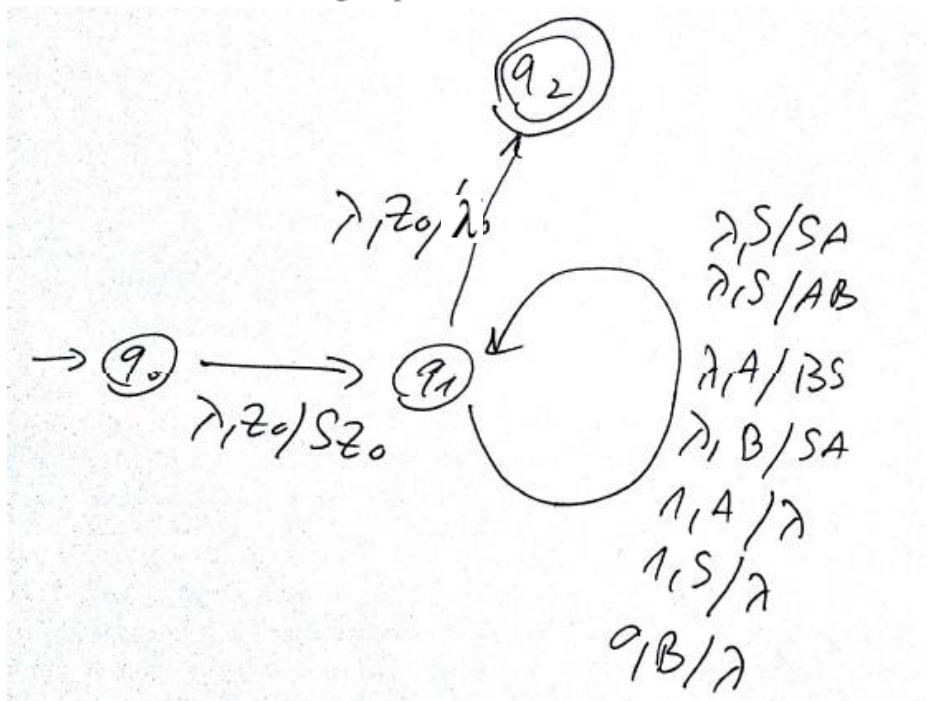 q₂
λ,Z₀/λ
λ,S/SA
λ,S/AB
q₀
q₁
λ,A/BS
λ,Z₀/SZ₀
λ,B/SA
1,A/λ
1,S/λ
0,B/λ